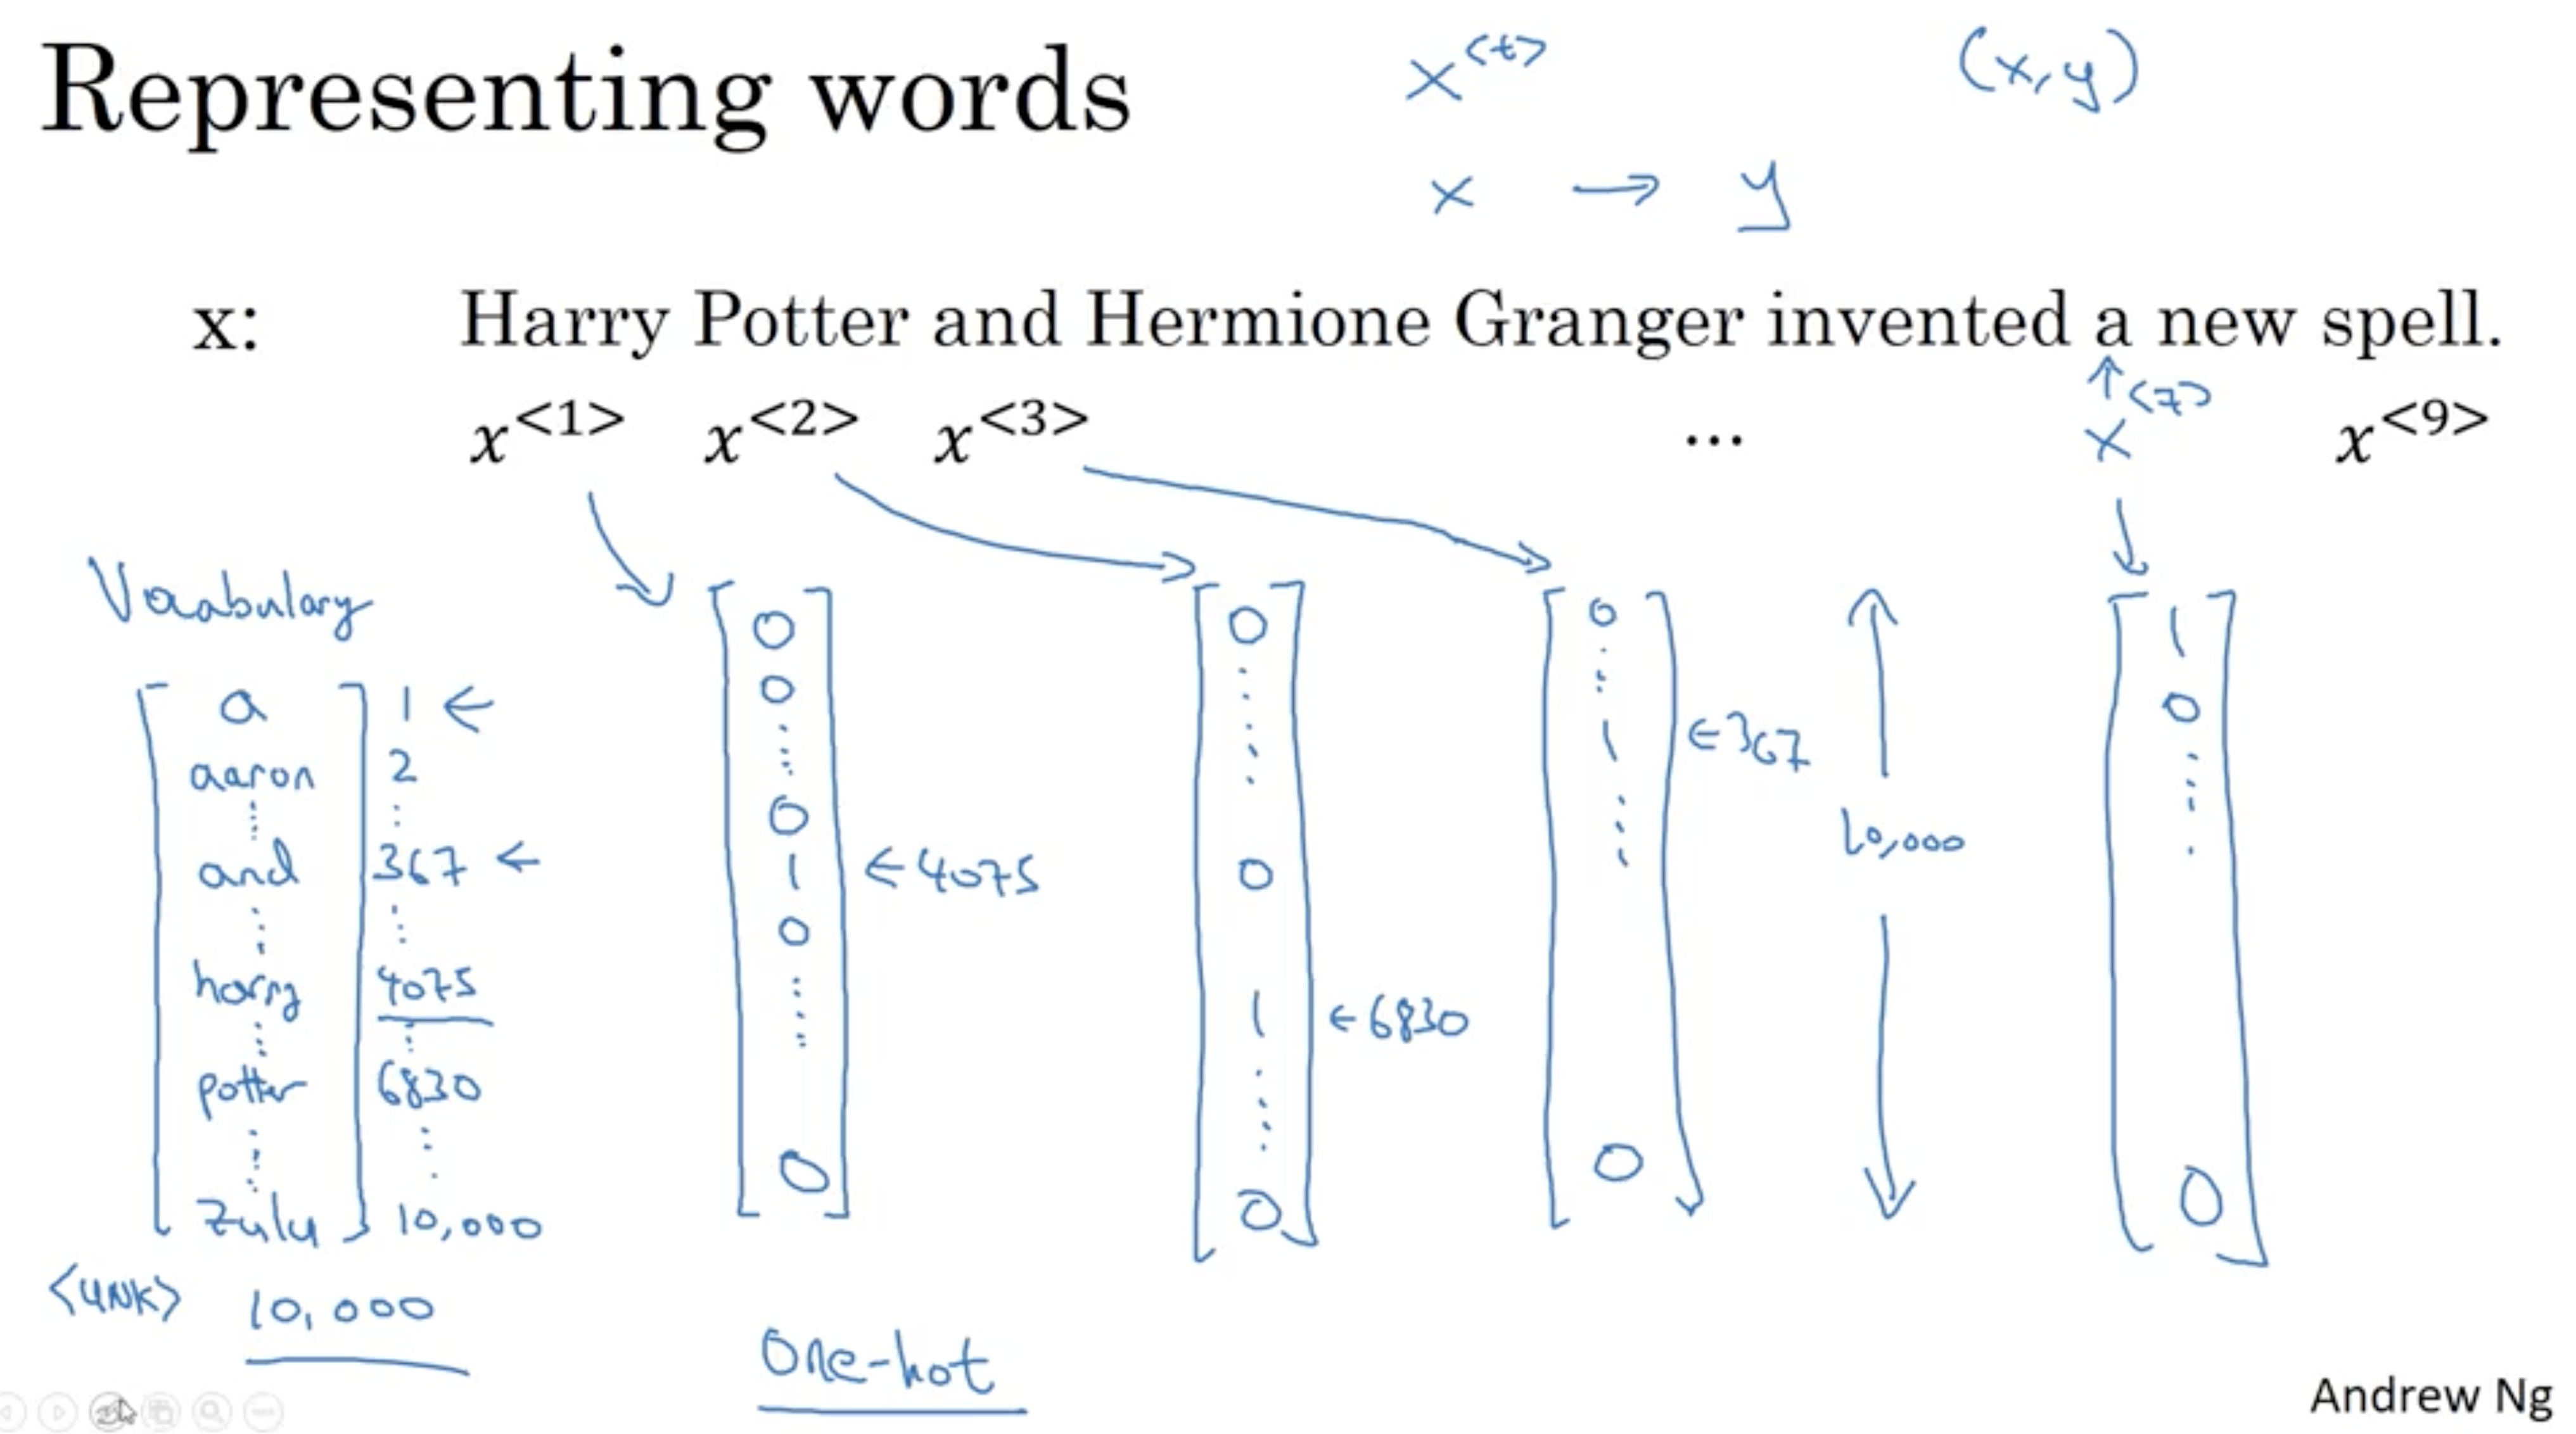 Representing words
x<t>
(x,y)
x → y
x: Harry Potter and Hermione Granger invented a new spell.
x<1> x<2> x<3> ... x<7> x<9>
Vocabulary
a 1 ←
aaron 2
and 367 ←
harry 4075
potter 6830
zulu 10,000
<UNK> 10,000
0
0
0
1 ← 4075
0
0
0
0
1 ← 6830
0
0
1 ← 367
0
10,000
1
0
0
One-hot
Andrew Ng